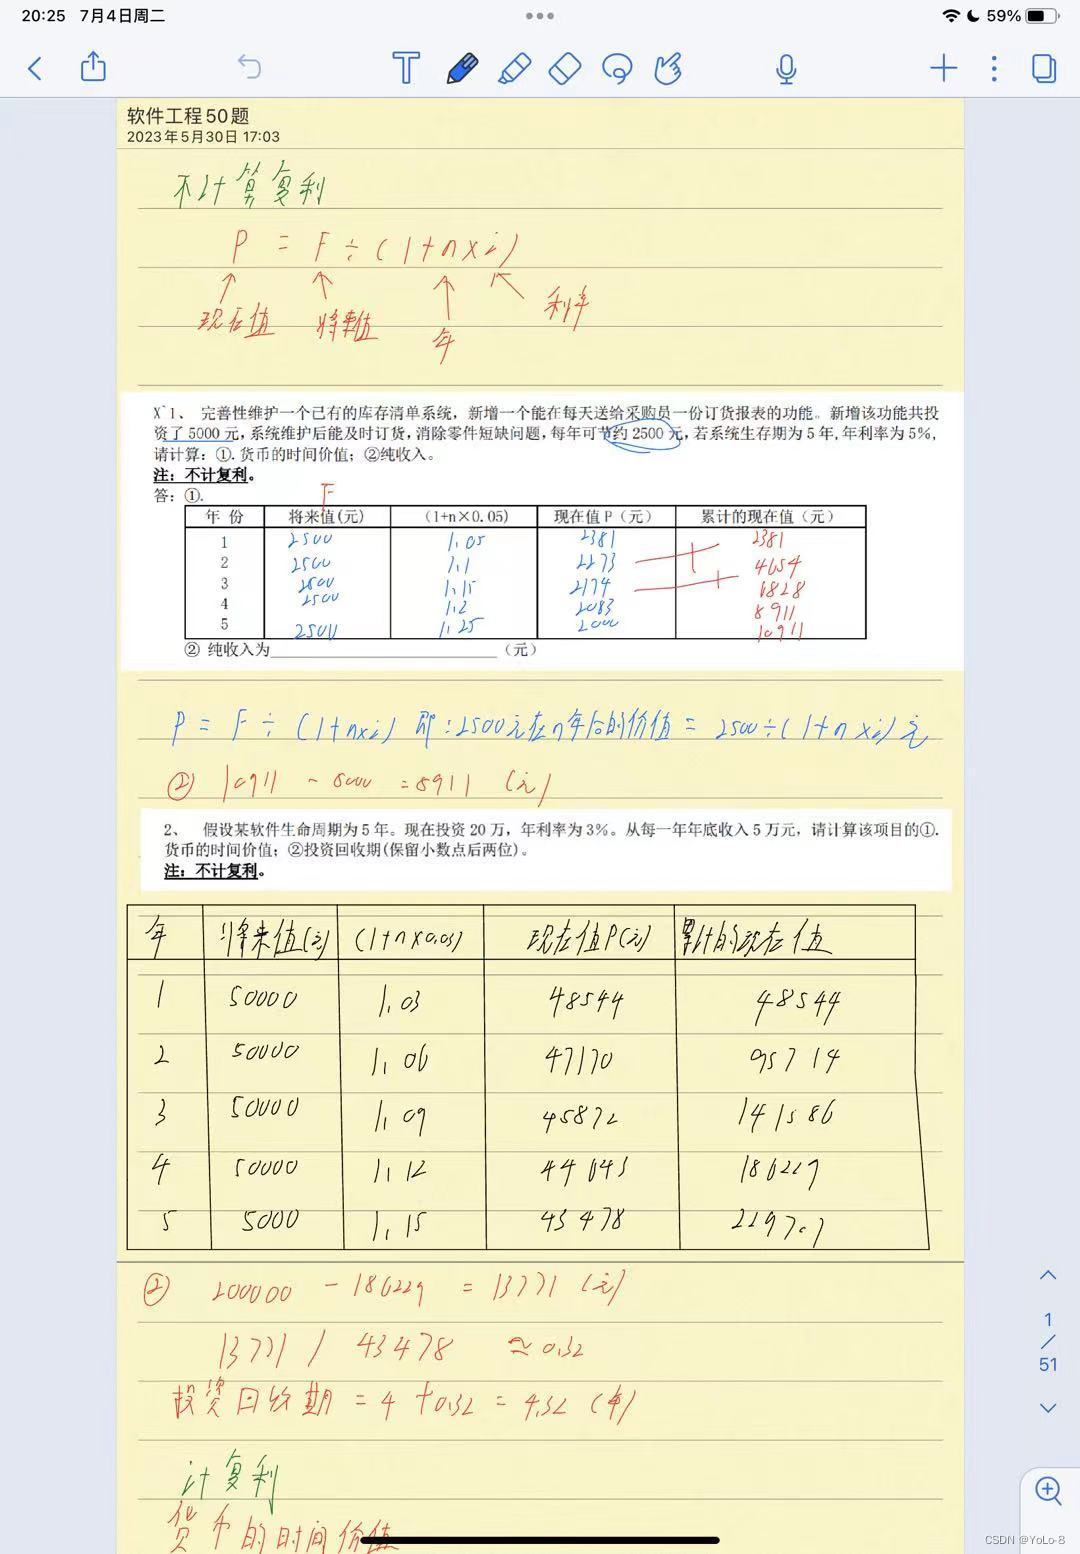 20:25 7月4日周二
59%
软件工程50题
2023年5月30日 17:03
不计算复利
P = F ÷ (1+n×i)
现在值 将来值 年 利率
X`1、 完善性维护一个已有的库存清单系统，新增一个能在每天送给采购员一份订货报表的功能。新增该功能共投
资了 5000 元，系统维护后能及时订货，消除零件短缺问题，每年可节约 2500 元，若系统生存期为 5 年，年利率为 5%，
请计算：①. 货币的时间价值；②纯收入。
注：不计复利。
答：①.
F
年 份 将来值(元) (1+n×0.05) 现在值 P（元） 累计的现在值（元）
1 2500 1.05 2381 2381
2 2500 1.1 2273 4654
3 2500 1.15 2174 6828
4 2500 1.2 2083 8911
5 2500 1.25 2000 10911
② 纯收入为 （元）
P = F ÷ (1+n×i) 即：2500元在n年后的价值 = 2500÷(1+n×i)元
② 10911 - 5000 = 8911 (元)
2、 假设某软件生命周期为 5 年。现在投资 20 万，年利率为 3%。从每一年年底收入 5 万元，请计算该项目的①.
货币的时间价值；②投资回收期(保留小数点后两位)。
注：不计复利。
年 将来值(元) (1+n×0.03) 现在值P(元) 累计的现在值
1 50000 1.03 48544 48544
2 50000 1.06 47170 95714
3 50000 1.09 45872 141586
4 50000 1.12 44643 186229
5 5000 1.15 43478 229707
② 200000 - 186229 = 13771 (元)
13771 / 43478 ≈ 0.32
投资回收期 = 4 + 0.32 = 4.32 (年)
计复利
货币的时间价值
1
/
51
CSDN @YoLo-8